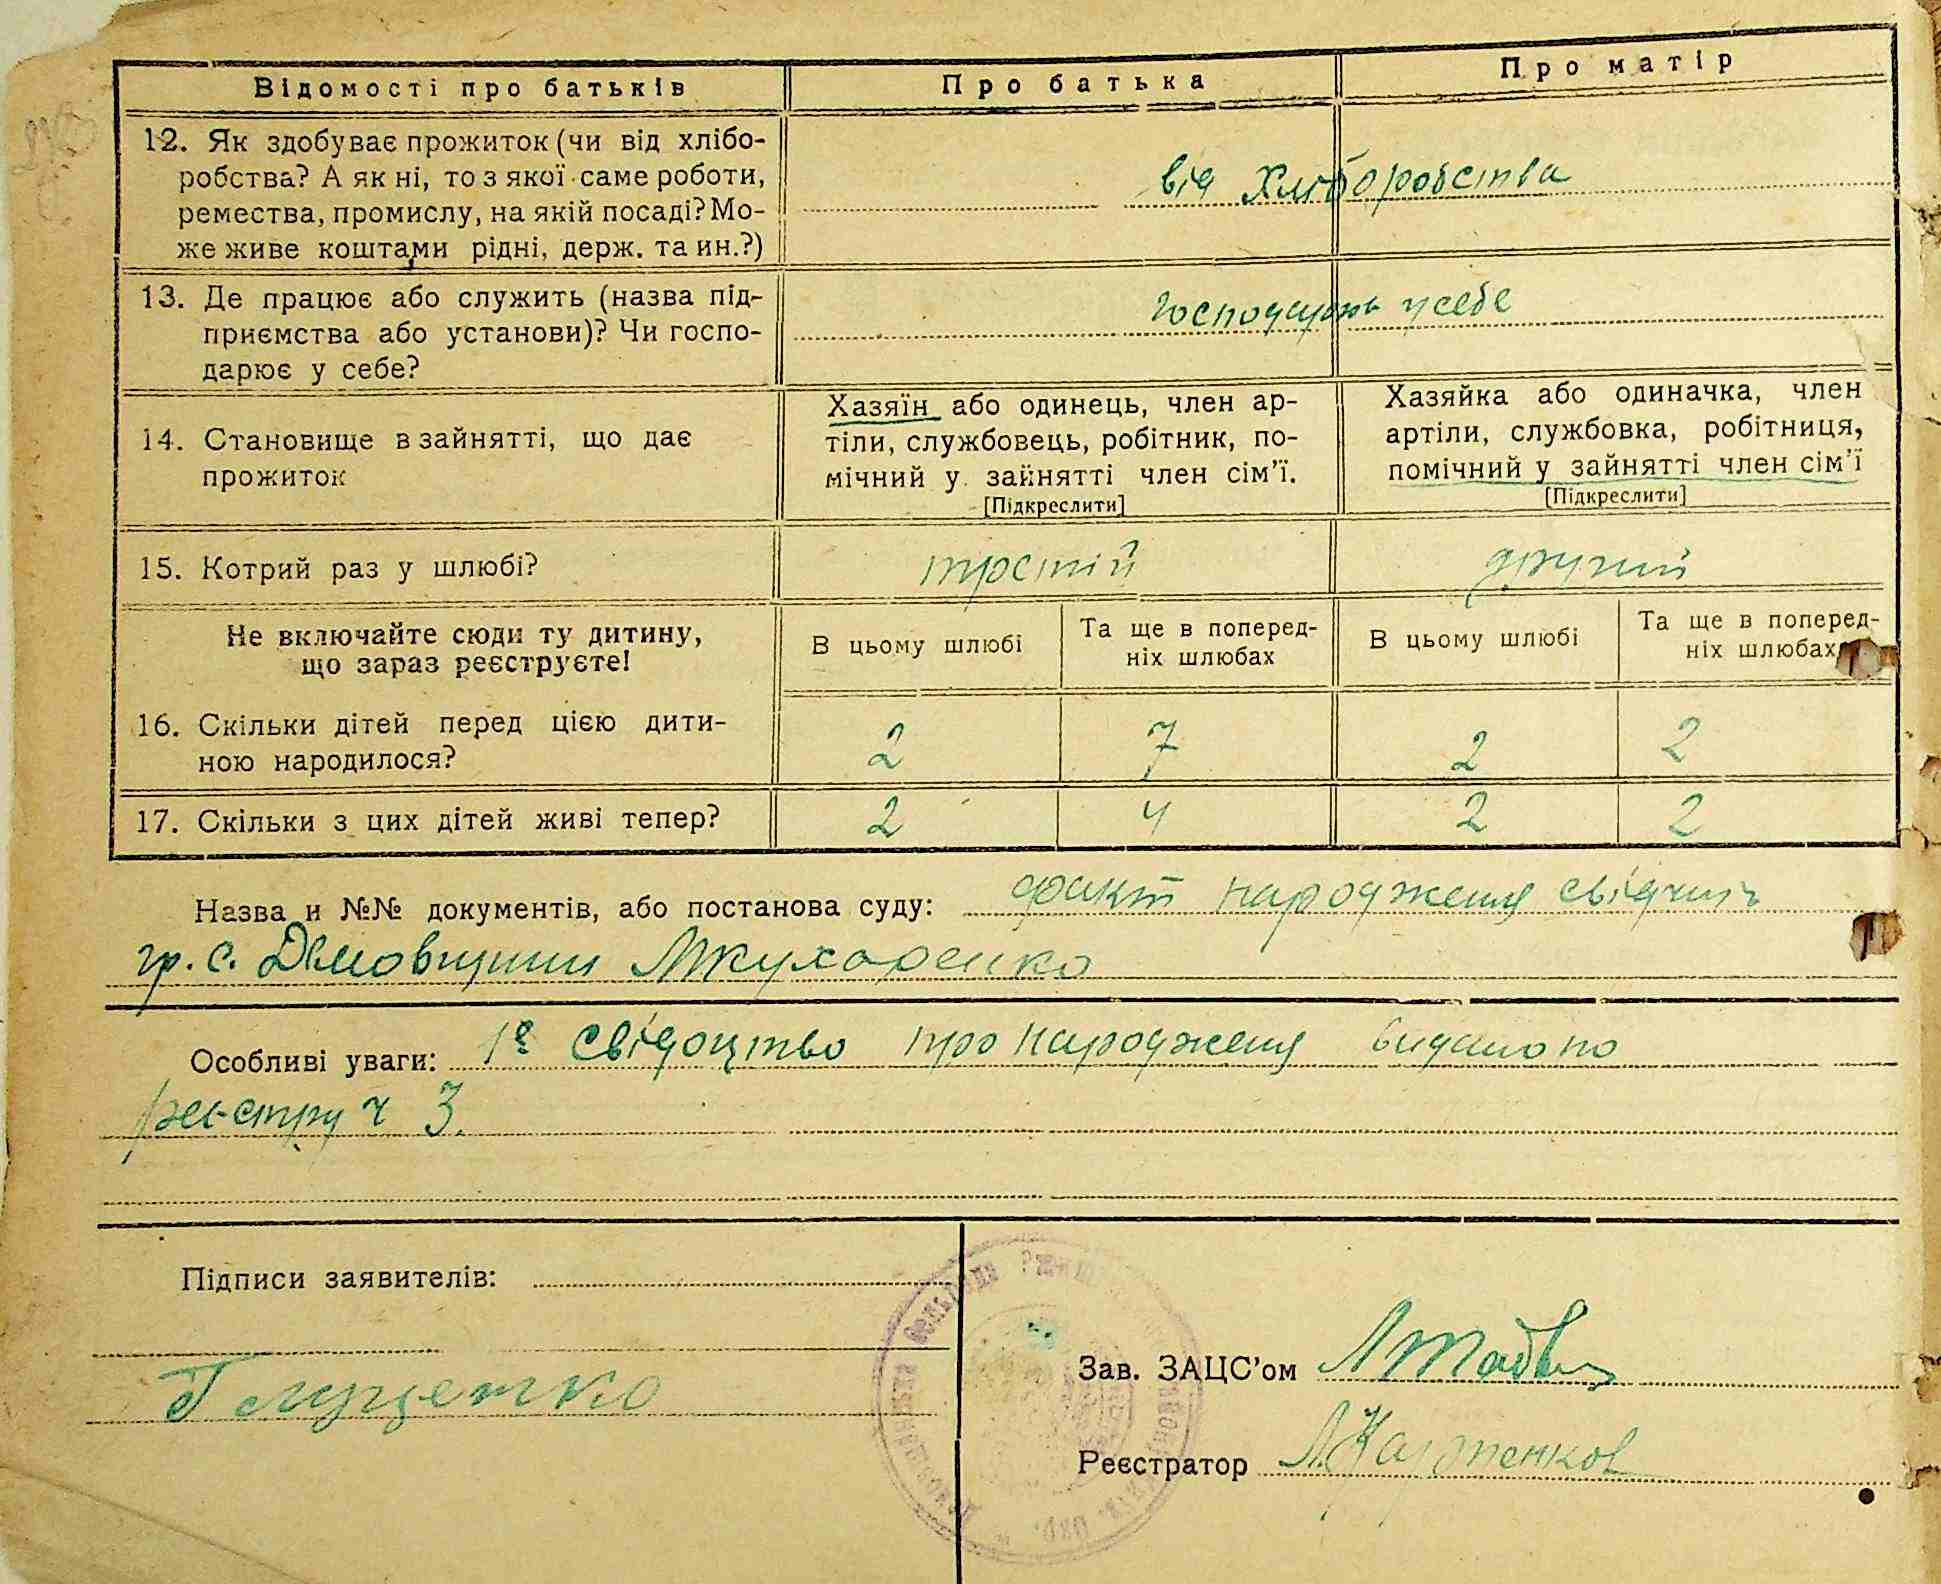 Відомості про батьків
Про батька
Про матір
12. Як здобуває прожиток (чи від хлібо-
робства? А як ні, то з якої саме роботи,
ремества, промислу, на якій посаді? Мо-
же живе коштами рідні, держ. та ин.?)
від хліборобства
13. Де працює або служить (назва під-
приємства або установи)? Чи госпо-
дарює у себе?
господарюють у себе
14. Становище в зайнятті, що дає
прожиток
Хазяїн або одинець, член ар-
тіли, службовець, робітник, по-
мічний у зайнятті член сім'ї.
[Підкреслити]
Хазяйка або одиначка, член
артіли, службовка, робітниця,
помічний у зайнятті член сім'ї
[Підкреслити]
15. Котрий раз у шлюбі?
третій
другий
Не включайте сюди ту дитину,
що зараз реєструєте!
В цьому шлюбі
Та ще в поперед-
ніх шлюбах
В цьому шлюбі
Та ще в поперед-
ніх шлюбах
16. Скільки дітей перед цією дити-
ною народилося?
2 7 2 2
17. Скільки з цих дітей живі тепер?
2 4 2 2
Назва и №№ документів, або постанова суду: факт народженя свідчить
гр. с. Демовщини Мкухаренко
Особливі уваги: 1е свідоцтво про народженя видано по
реєстру ч 3.
Підписи заявителів:
Глущенко
Зав. ЗАЦС'ом
Реєстратор
сельрада Ржищ